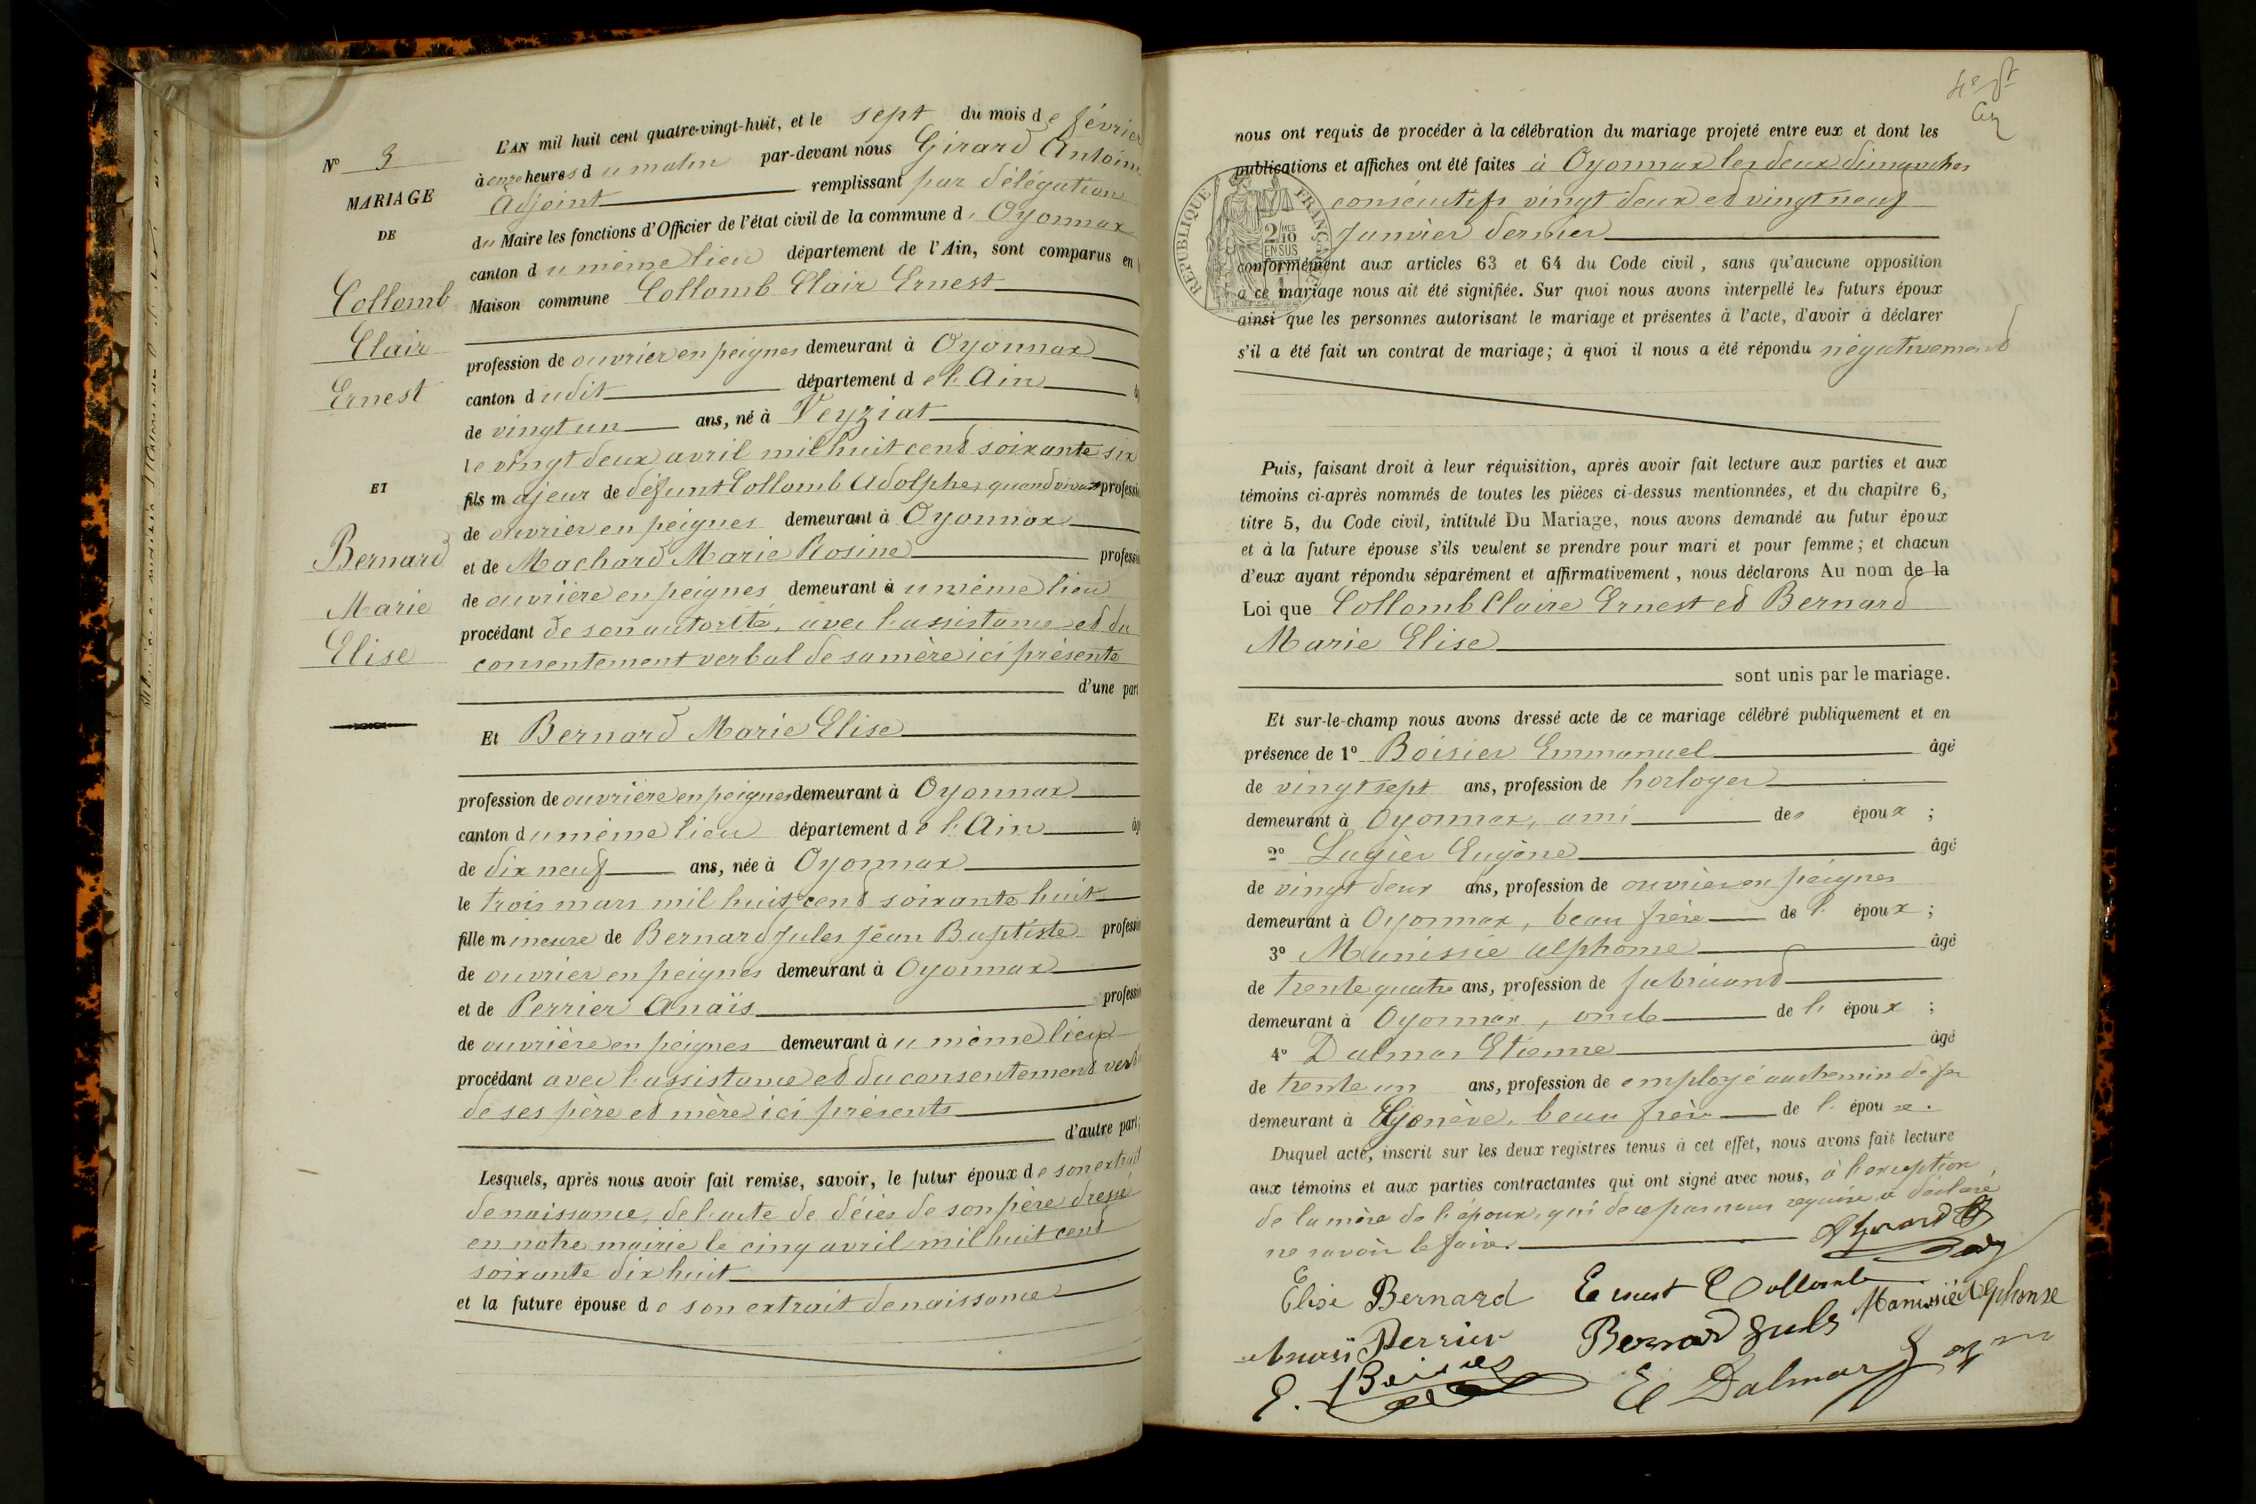 N° 3
MARIAGE
DE
Collomb
Clair
Ernest
ET
Bernard
Marie
Elise
L'AN mil huit cent quatre-vingt-huit, et le sept du mois de février
à onze heures du matin par-devant nous Girard Antoine
Adjoint remplissant par délégation
du Maire les fonctions d'Officier de l'état civil de la commune d' Oyonnax
canton du même lieu département de l'Ain, sont comparus en
Maison commune Collomb Clair Ernest
profession de ouvrier en peignes demeurant à Oyonnax
canton dudit département de l'Ain
de vingt un ans, né à Veyziat
le vingt deux avril mil huit cent soixante six
fils majeur de défunt Collomb Adolphe, quand vivait profession
de ouvrier en peignes demeurant à Oyonnax
et de Machard Marie Rosine profession
de ouvrière en peignes demeurant au même lieu
procédant de son autorité, avec l'assistance et du
consentement verbal de sa mère ici présente
d'une part
Et Bernard Marie Elise
profession de ouvrière en peignes demeurant à Oyonnax
canton du même lieu département de l'Ain
de dix neuf ans, née à Oyonnax
le trois mars mil huit cent soixante huit
fille mineure de Bernard Jules Jean Baptiste profession
de ouvrier en peignes demeurant à Oyonnax
et de Perrier Anaïs profession
de ouvrière en peignes demeurant au même lieu
procédant avec l'assistance et du consentement verb
de ses père et mère ici présents
d'autre part;
Lesquels, après nous avoir fait remise, savoir, le futur époux de son extrait
de naissance, de l'acte de décès de son père dressé
en notre mairie le cinq avril mil huit cent
soixante dix huit
et la future épouse de son extrait de naissance
nous ont requis de procéder à la célébration du mariage projeté entre eux et dont les
publications et affiches ont été faites à Oyonnax les deux dimanches
consécutifs vingt deux et vingt neuf
Janvier dernier
REPUBLIQUE FRANÇAISE
2/10 EN SUS
conformément aux articles 63 et 64 du Code civil, sans qu'aucune opposition
à ce mariage nous ait été signifiée. Sur quoi nous avons interpellé les futurs époux
ainsi que les personnes autorisant le mariage et présentes à l'acte, d'avoir à déclarer
s'il a été fait un contrat de mariage; à quoi il nous a été répondu négativement
Puis, faisant droit à leur réquisition, après avoir fait lecture aux parties et aux
témoins ci-après nommés de toutes les pièces ci-dessus mentionnées, et du chapitre 6,
titre 5, du Code civil, intitulé Du Mariage, nous avons demandé au futur époux
et à la future épouse s'ils veulent se prendre pour mari et pour femme; et chacun
d'eux ayant répondu séparément et affirmativement, nous déclarons Au nom de la
Loi que Collomb Claire Ernest et Bernard
Marie Elise
sont unis par le mariage.
Et sur-le-champ nous avons dressé acte de ce mariage célébré publiquement et en
présence de 1° Boisier Emmanuel âgé
de vingt sept ans, profession de horloger
demeurant à Oyonnax, ami des époux;
2° Lugier Eugène âgé
de vingt deux ans, profession de ouvrier en peignes
demeurant à Oyonnax, beau frère de l'époux;
3° Manissié Alphonse âgé
de trente quatre ans, profession de fabricant
demeurant à Oyonnax, oncle de l'époux;
4° Dalmas Etienne âgé
de trente un ans, profession de employé au chemin de fer
demeurant à Genève, beau frère de l'époux.
Duquel acte, inscrit sur les deux registres tenus à cet effet, nous avons fait lecture
aux témoins et aux parties contractantes qui ont signé avec nous, à l'exception
de la mère de l'époux, qui de ce par nous requise, a déclaré
ne savoir le faire.
AGirard
Elise Bernard Ernest Collomb Manissié Alphonse
Anaïs Perrier Bernard Jules
E. Boisier E Dalmas